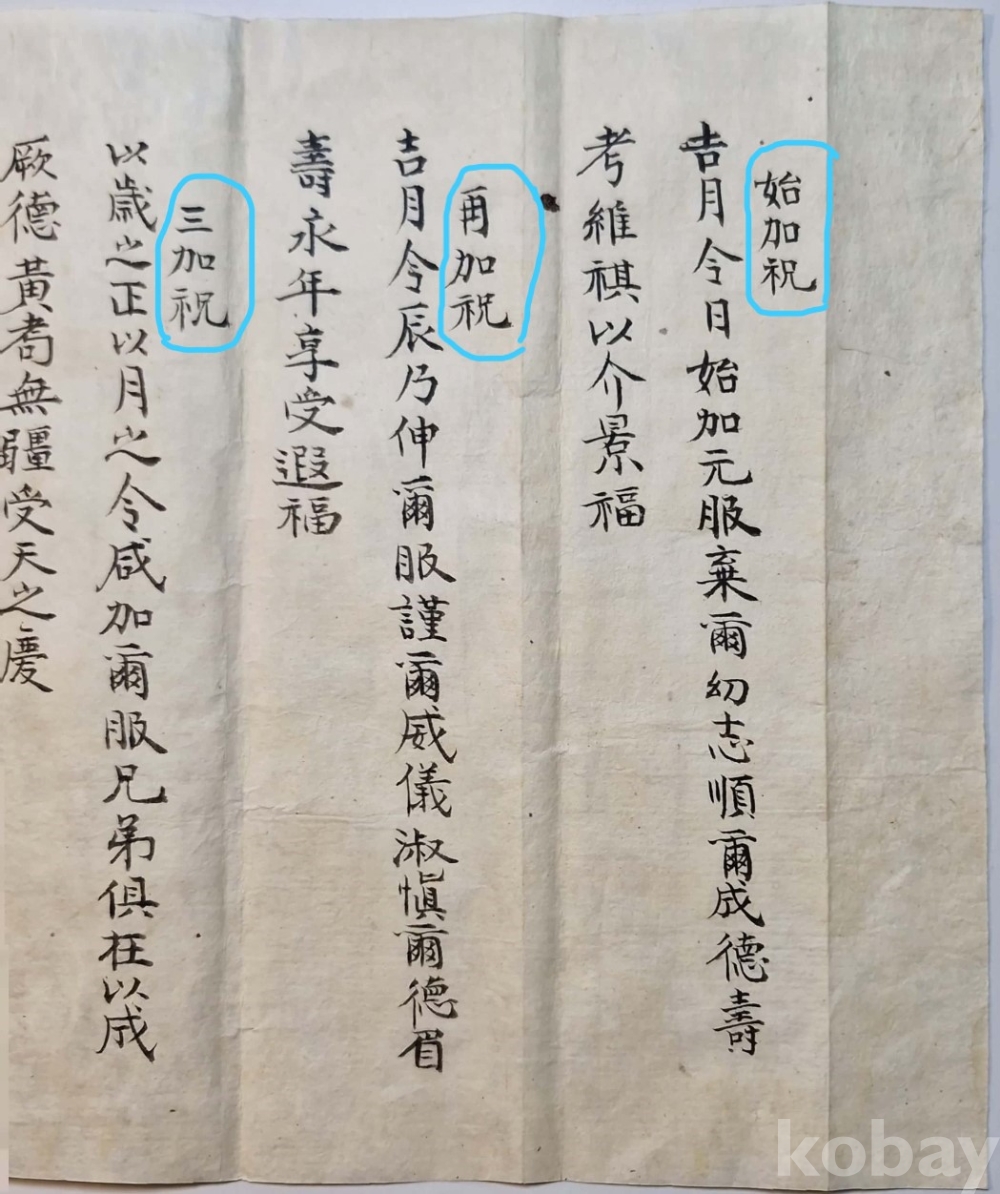 始加祝
吉月令日始加元服棄爾幼志順爾成德壽
考維祺以介景福
再加祝
吉月令辰乃伸爾服謹爾威儀淑愼爾德眉
壽永年享受遐福
三加祝
以歲之正以月之令咸加爾服兄弟俱在以成
厥德黃耈無疆受天之慶
kobay